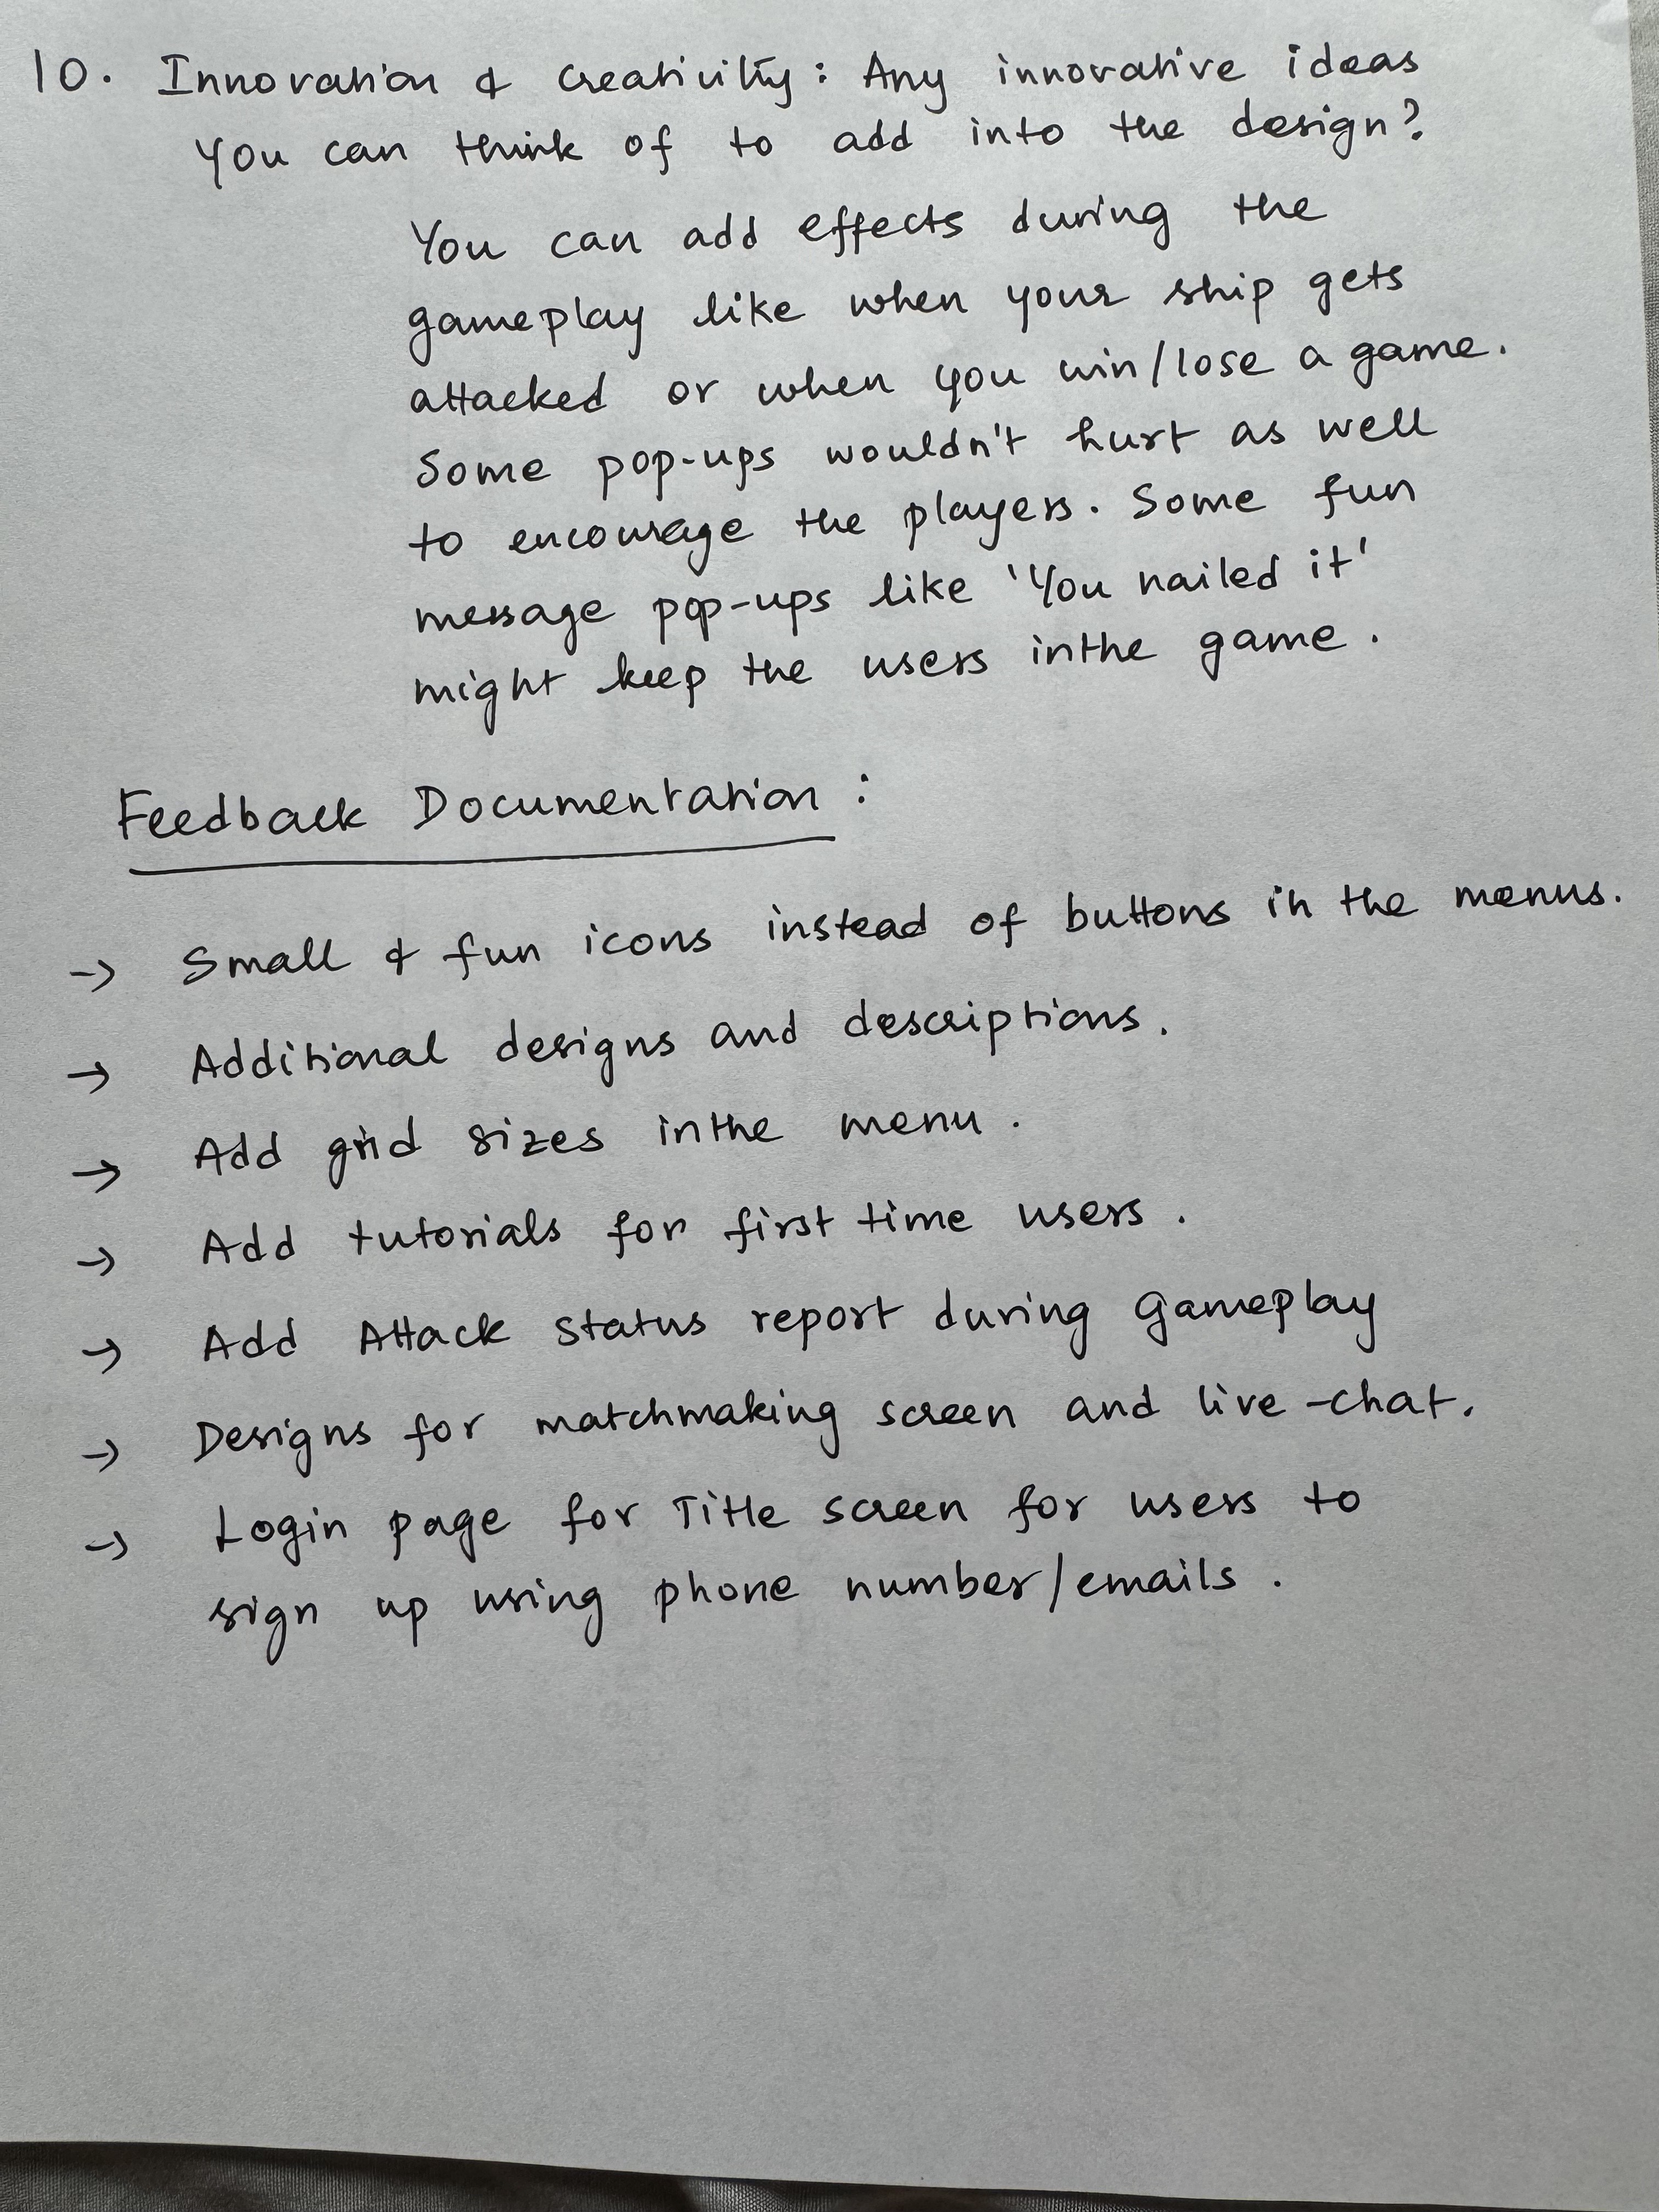 10. Innovation & Creativity: Any innovative ideas
you can think of to add into the design?
You can add effects during the
gameplay like when your ship gets
attacked or when you win/lose a game.
Some pop-ups wouldn't hurt as well
to encourage the players. Some fun
message pop-ups like 'You nailed it'
might keep the users in the game.
Feedback Documentation:
→ Small & fun icons instead of buttons in the menus.
→ Additional designs and descriptions.
→ Add grid sizes in the menu.
→ Add tutorials for first time users.
→ Add Attack status report during Gameplay
→ Designs for matchmaking screen and live-chat.
→ Login page for Title screen for users to
sign up using phone number/emails.